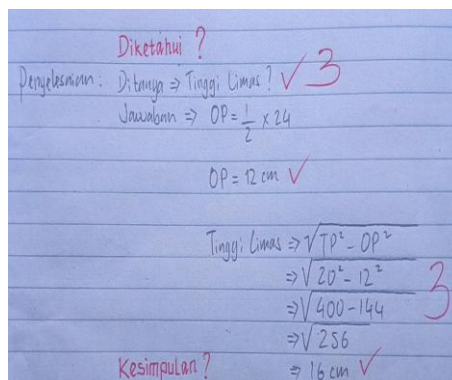 Diketahui ?
Penyelesaian : Ditanya ⇒ Tinggi Limas ? ✓ 3
Jawaban ⇒ OP = 1/2 × 24
OP = 12 cm ✓
Tinggi Limas ⇒ √TP² - OP²
⇒ √20² - 12²
⇒ √400 - 144 3
⇒ √256
Kesimpulan ? ⇒ 16 cm ✓